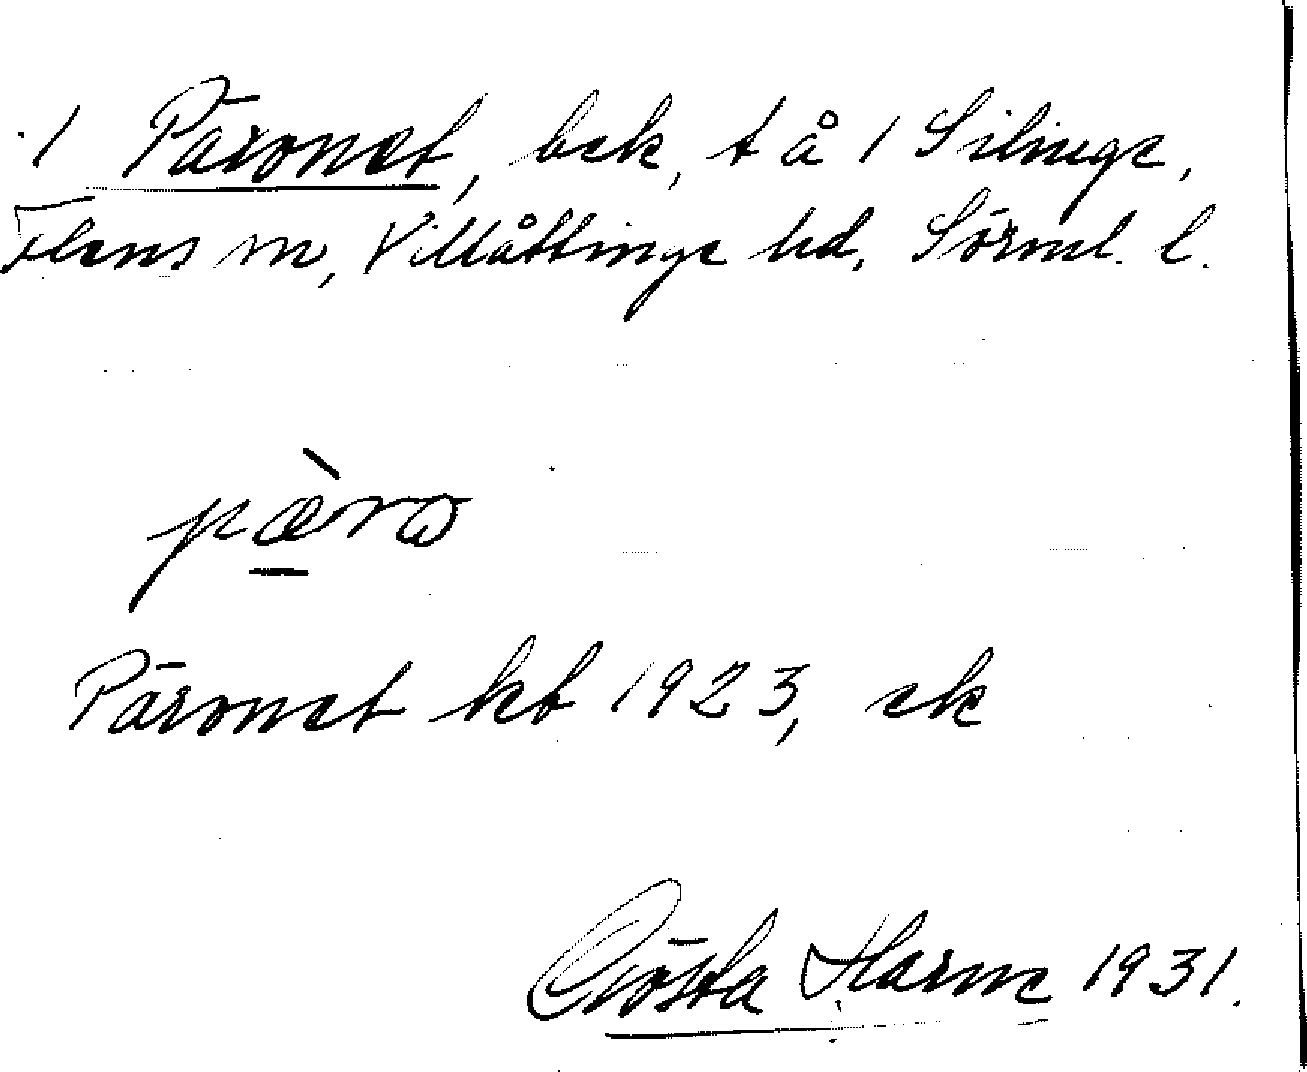 1 Päronet, bek, t å 1 Silinge,
Flens sn, Villåttinge hd, Sörml. l.
pæ̀ro
Päronet kb 1923, ek
Gösta Harne 1931.